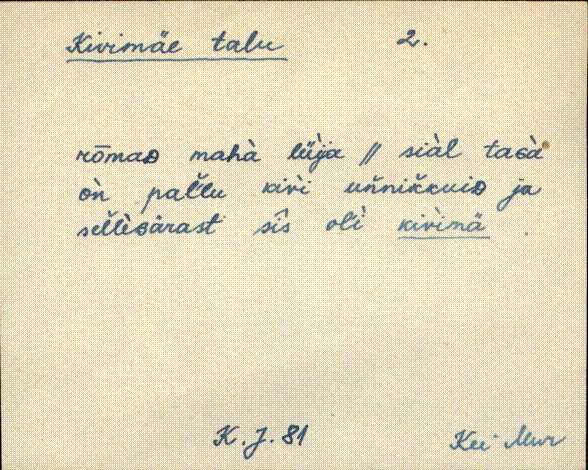 Kivimäe talu 2.
rōmaᴅ mahà lüìja // siàl taɢà
òn pal̆lu kivì uñnik̆kuiᴅ ja
sel̆lèɢàrast sîs olì kivìmä.
K. J. 81 Kei Mur